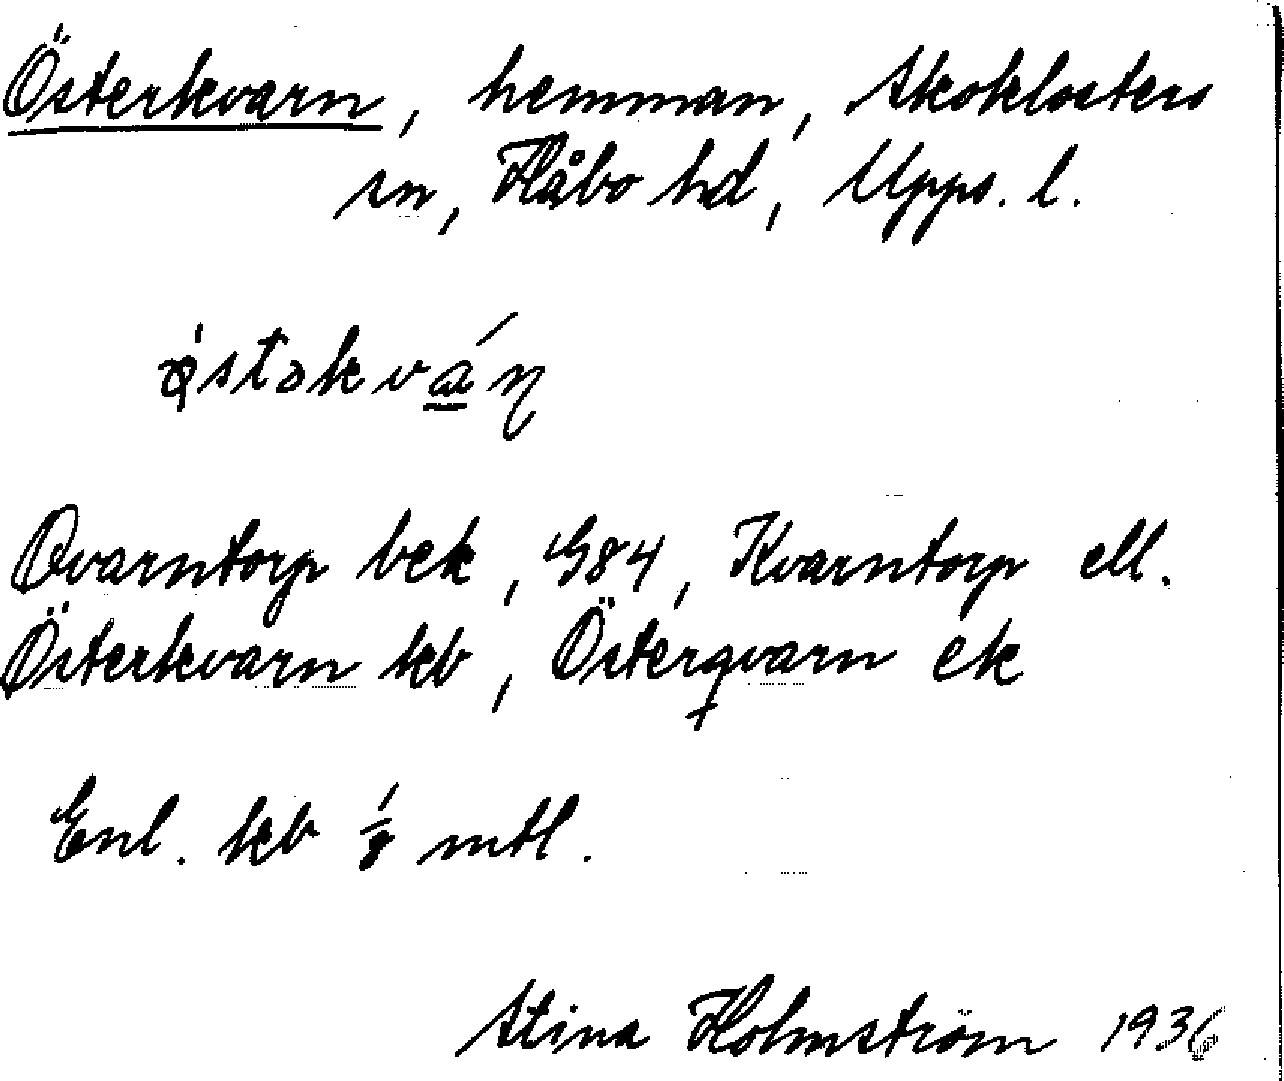 Österkvarn, hemman, Skoklosters
sn, Håbo hd, Upps. l.
Qvarntorp bek, G84, Kvarntorp ell.
Österkvarn kb, Österqvarn ek
Enl. kb 1/8 mtl.
Stina Holmström 1936